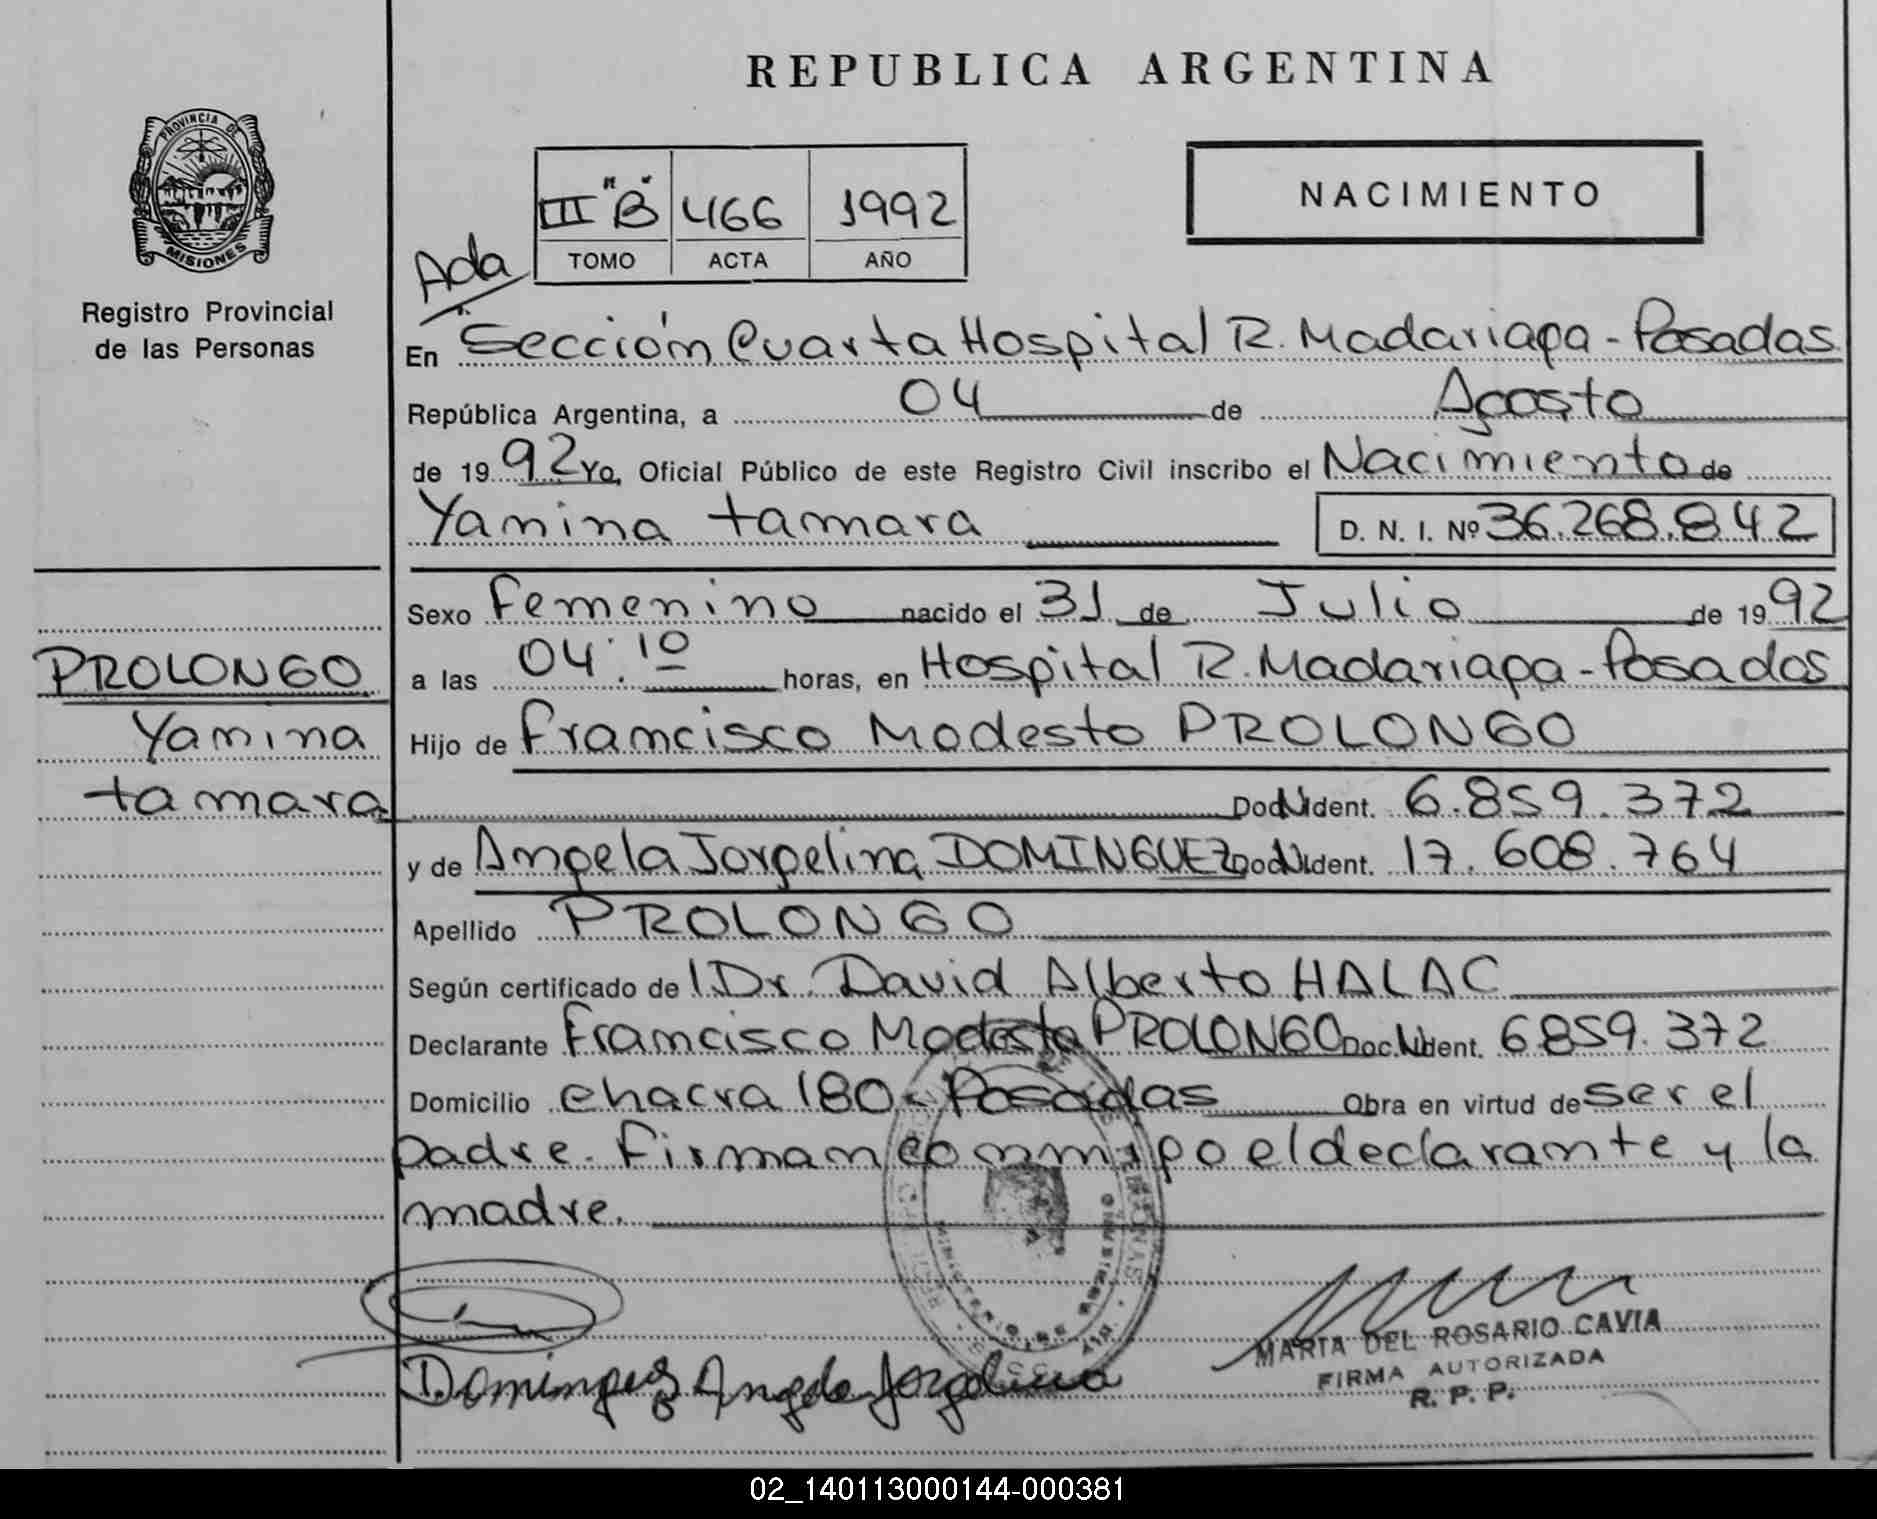 REPUBLICA ARGENTINA
PROVINCIA DE
MISIONES
Registro Provincial
de las Personas
III "B" 466 1992
TOMO ACTA AÑO
NACIMIENTO
Ada
En Sección Cuarta Hospital R. Madariaga - Posadas
República Argentina, a 04 de Agosto
de 1992 Yo, Oficial Público de este Registro Civil inscribo el Nacimiento de
Yanina tamara D. N. I. Nº 36.268.842
Sexo Femenino nacido el 31 de Julio de 1992
a las 04:10 horas, en Hospital R. Madariaga - Posadas
PROLONGO
Yanina
tamara
Hijo de Francisco Modesto PROLONGO
Doc. N. Ident. 6.859.372
y de Angela Jorgelina DOMINGUEZ Doc. N. Ident. 17.608.764
Apellido PROLONGO
Según certificado de l Dr. David Alberto HALAC
Declarante Francisco Modesto PROLONGO Doc. N. Ident. 6859.372
Domicilio chacra 180 - Posadas Obra en virtud de ser el
padre. Firman conmigo el declarante y la
madre.
Dominguez Angela Jorgelina
MARIA DEL ROSARIO CAVIA
FIRMA AUTORIZADA
R. P. P.
02_140113000144-000381